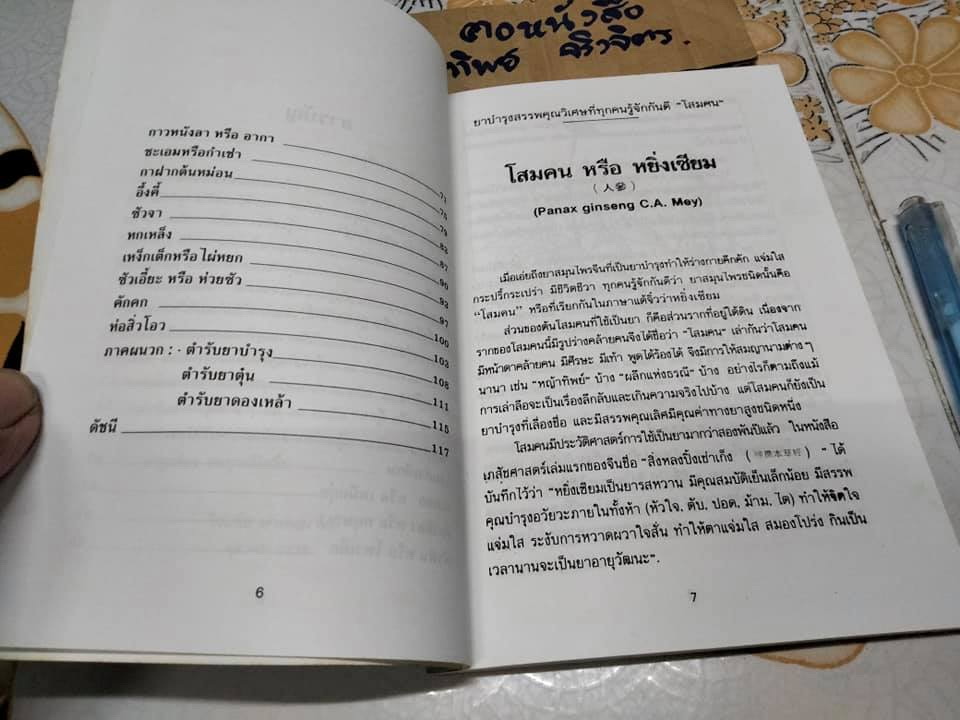 ตอหนังสือ
ทิพย์ จิวจิตร.
กาวหนังลา หรือ อากา
ชะเอมหรือกำเช่า
กาฝากต้นหม่อน 71
อึ้งคี้ 75
ซัวจา 79
หกเหล็ง 83
เหง็กเต็กหรือไผ่หยก 87
ซัวเอี๊ยะ หรือ ห่วยซัว 90
คักคก 93
ห่อสิ่วโอว 97
100
ภาคผนวก : - ตำรับยาบำรุง 103
ตำรับยาตุ๋น 108
ตำรับยาดองเหล้า 111
115
ดัชนี 117
6
ยาบำรุงสรรพคุณวิเศษที่ทุกคนรู้จักกันดี "โสมคน"
โสมคน หรือ หยิ่งเซียม
(人參)
(Panax ginseng C.A. Mey)
เมื่อเอ่ยถึงยาสมุนไพรจีนที่เป็นยาบำรุงทำให้ร่างกายคึกคัก แจ่มใส
กระปรี้กระเปร่า มีชีวิตชีวา ทุกคนรู้จักกันดีว่า ยาสมุนไพรชนิดนั้นคือ
"โสมคน" หรือที่เรียกกันในภาษาแต้จิ๋วว่าหยิ่งเซียม
ส่วนของต้นโสมคนที่ใช้เป็นยา ก็คือส่วนรากที่อยู่ใต้ดิน เนื่องจาก
รากของโสมคนนี้มีรูปร่างคล้ายคนจึงได้ชื่อว่า "โสมคน" เล่ากันว่าโสมคน
มีหน้าตาคล้ายคน มีศีรษะ มีเท้า พูดได้ร้องได้ จึงมีการให้สมญานามต่างๆ
นานา เช่น "หญ้าทิพย์" บ้าง "ผลึกแห่งธรณี" บ้าง อย่างไรก็ตามถึงแม้
การเล่าลือจะเป็นเรื่องลึกลับและเกินความจริงไปบ้าง แต่โสมคนก็ยังเป็น
ยาบำรุงที่เลื่องชื่อ และมีสรรพคุณเลิศมีคุณค่าทางยาสูงชนิดหนึ่ง
โสมคนมีประวัติศาสตร์การใช้เป็นยามากว่าสองพันปีแล้ว ในหนังสือ
เภสัชศาสตร์เล่มแรกของจีนชื่อ "สิ่งหลงปึ้งเช่าเก็ง (神農本草經) " ได้
บันทึกไว้ว่า "หยิ่งเซียมเป็นยารสหวาน มีคุณสมบัติเย็นเล็กน้อย มีสรรพ
คุณบำรุงอวัยวะภายในทั้งห้า (หัวใจ, ตับ, ปอด, ม้าม, ไต) ทำให้จิตใจ
แจ่มใส ระงับการหวาดผวาใจสั่น ทำให้ตาแจ่มใส สมองโปร่ง กินเป็น
เวลานานจะเป็นยาอายุวัฒนะ".
7